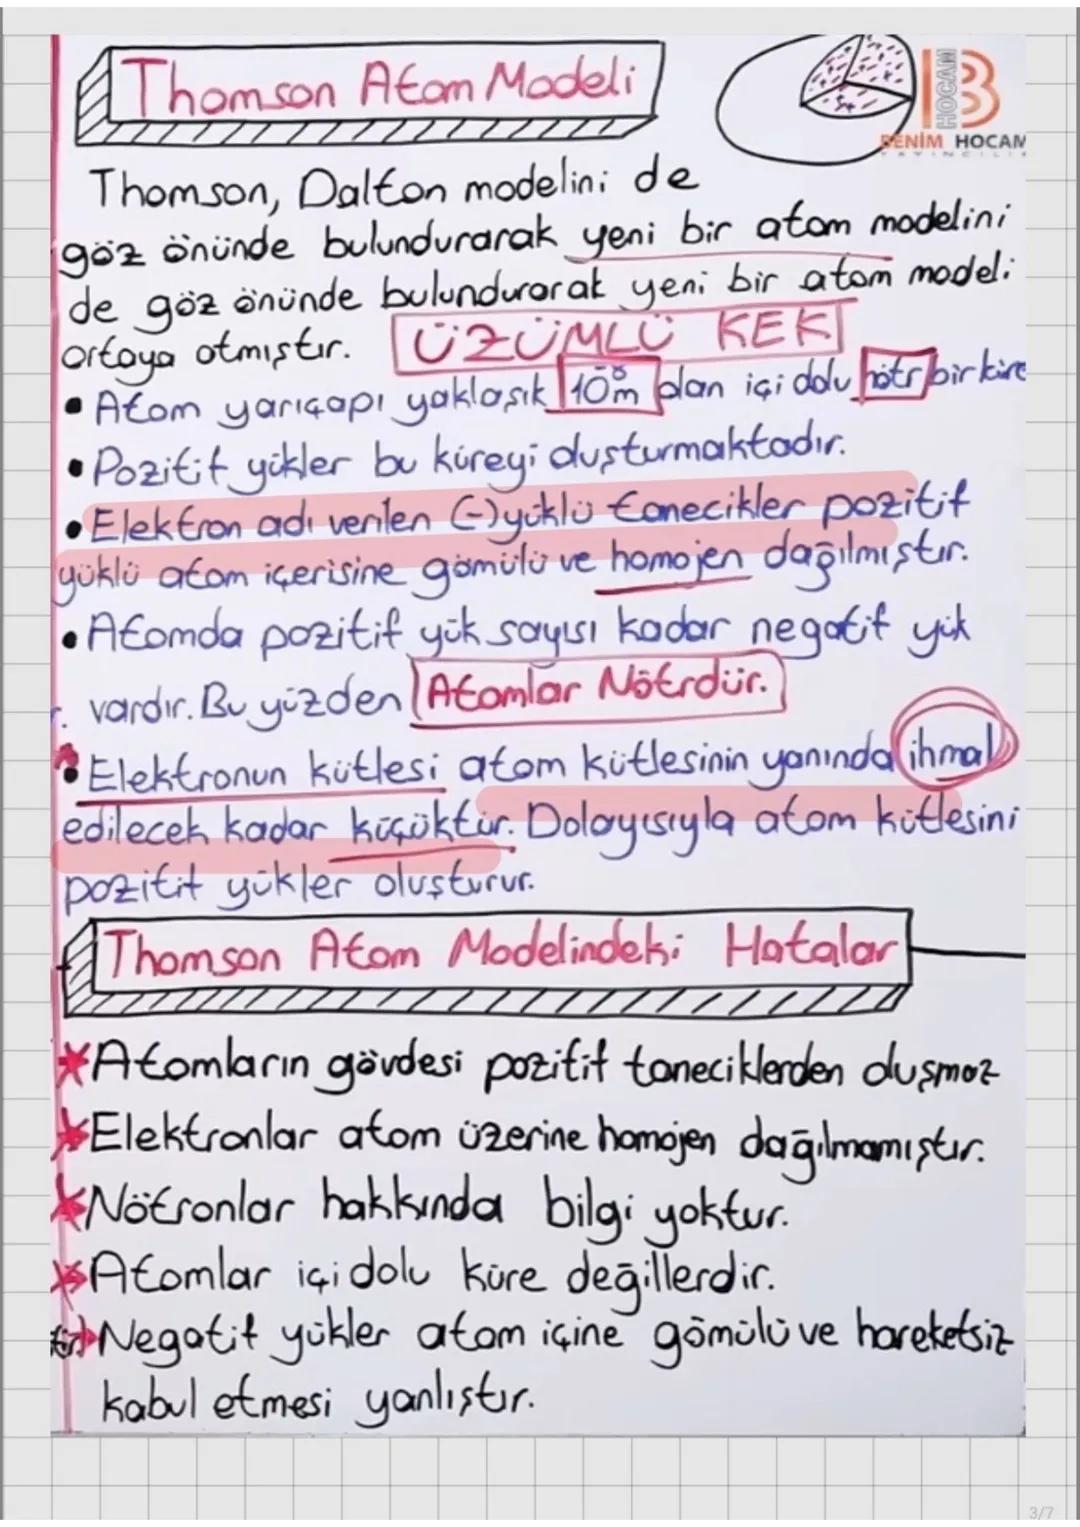 Thomson Atom Modeli
HOCAM
B
BENİM HOCAM
YAYINCILIK
Thomson, Dalton modelini de
göz önünde bulundurarak yeni bir atom modelini
de göz önünde bulundurarak yeni bir atom modeli
ortaya atmıştır. ÜZÜMLÜ KEK
• Atom yarıçapı yaklaşık 10⁻⁸m olan içi dolu nötr bir küre
• Pozitif yükler bu küreyi oluşturmaktadır.
• Elektron adı verilen (-) yüklü tanecikler pozitif
yüklü atom içerisine gömülü ve homojen dağılmıştır.
• Atomda pozitif yük sayısı kadar negatif yük
vardır. Bu yüzden Atomlar Nötrdür.
• Elektronun kütlesi atom kütlesinin yanında ihmal
edilecek kadar küçüktür. Dolayısıyla atom kütlesini
pozitif yükler oluşturur.
Thomson Atom Modelindeki Hatalar
Atomların gövdesi pozitif taneciklerden oluşmaz
Elektronlar atom üzerine homojen dağılmamıştır.
Nötronlar hakkında bilgi yoktur.
Atomlar içi dolu küre değillerdir.
Negatif yükler atom içine gömülü ve hareketsiz
kabul etmesi yanlıştır.
3/7